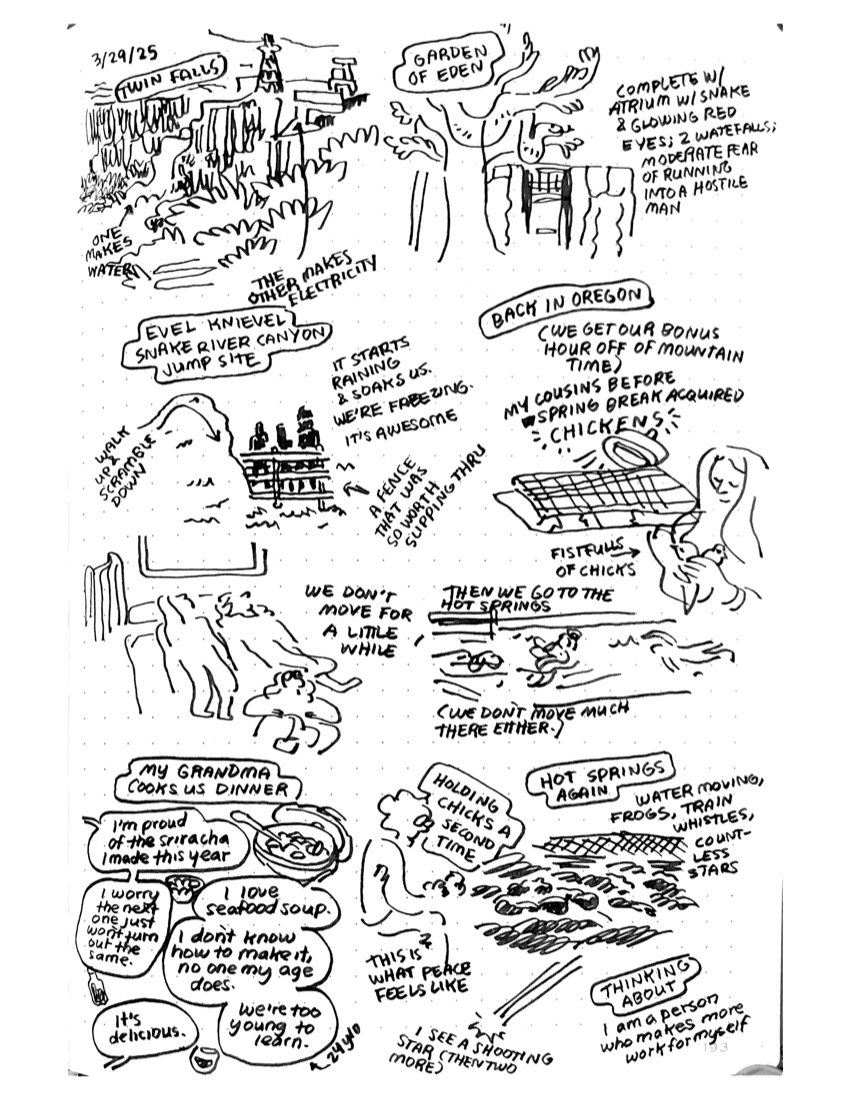 3/29/25
TWIN FALLS
ONE
MAKES
WATER
THE
OTHER MAKES
ELECTRICITY
GARDEN
OF EDEN
COMPLETE W/
ATRIUM W/ SNAKE
& GLOWING RED
EYES; 2 WATEFALLS;
MODERATE FEAR
OF RUNNING
INTO A HOSTILE
MAN
EVEL KNIEVEL
SNAKE RIVER CANYON
JUMP SITE
WALK
UP &
SCRAMBLE
DOWN
IT STARTS
RAINING
& SOAKS US.
WE'RE FREEZING.
IT'S AWESOME
A FENCE
THAT WAS
SO WORTH
SLIPPING THRU
WE DON'T
MOVE FOR
A LITTLE
WHILE
BACK IN OREGON
(WE GET OUR BONUS
HOUR OFF OF MOUNTAIN
TIME)
MY COUSINS BEFORE
SPRING BREAK ACQUIRED
CHICKENS
FISTFULLS
OF CHICKS
THEN WE GO TO THE
HOT SPRINGS
(WE DON'T MOVE MUCH
THERE EITHER.)
MY GRANDMA
COOKS US DINNER
I'm proud
of the sriracha
I made this year
I worry
the next
one just
won't turn
out the
same.
I love
seafood soup.
I don't know
how to make it,
no one my age
does.
We're too
young to
learn.
24 y/o
It's
delicious.
HOLDING
CHICKS A
SECOND
TIME
THIS IS
WHAT PEACE
FEELS LIKE
HOT SPRINGS
AGAIN
WATER MOVING,
FROGS, TRAIN
WHISTLES,
COUNT-
LESS
STARS
I SEE A SHOOTING
STAR (THEN TWO
MORE)
THINKING
ABOUT
I am a person
who makes more
work for myself
193